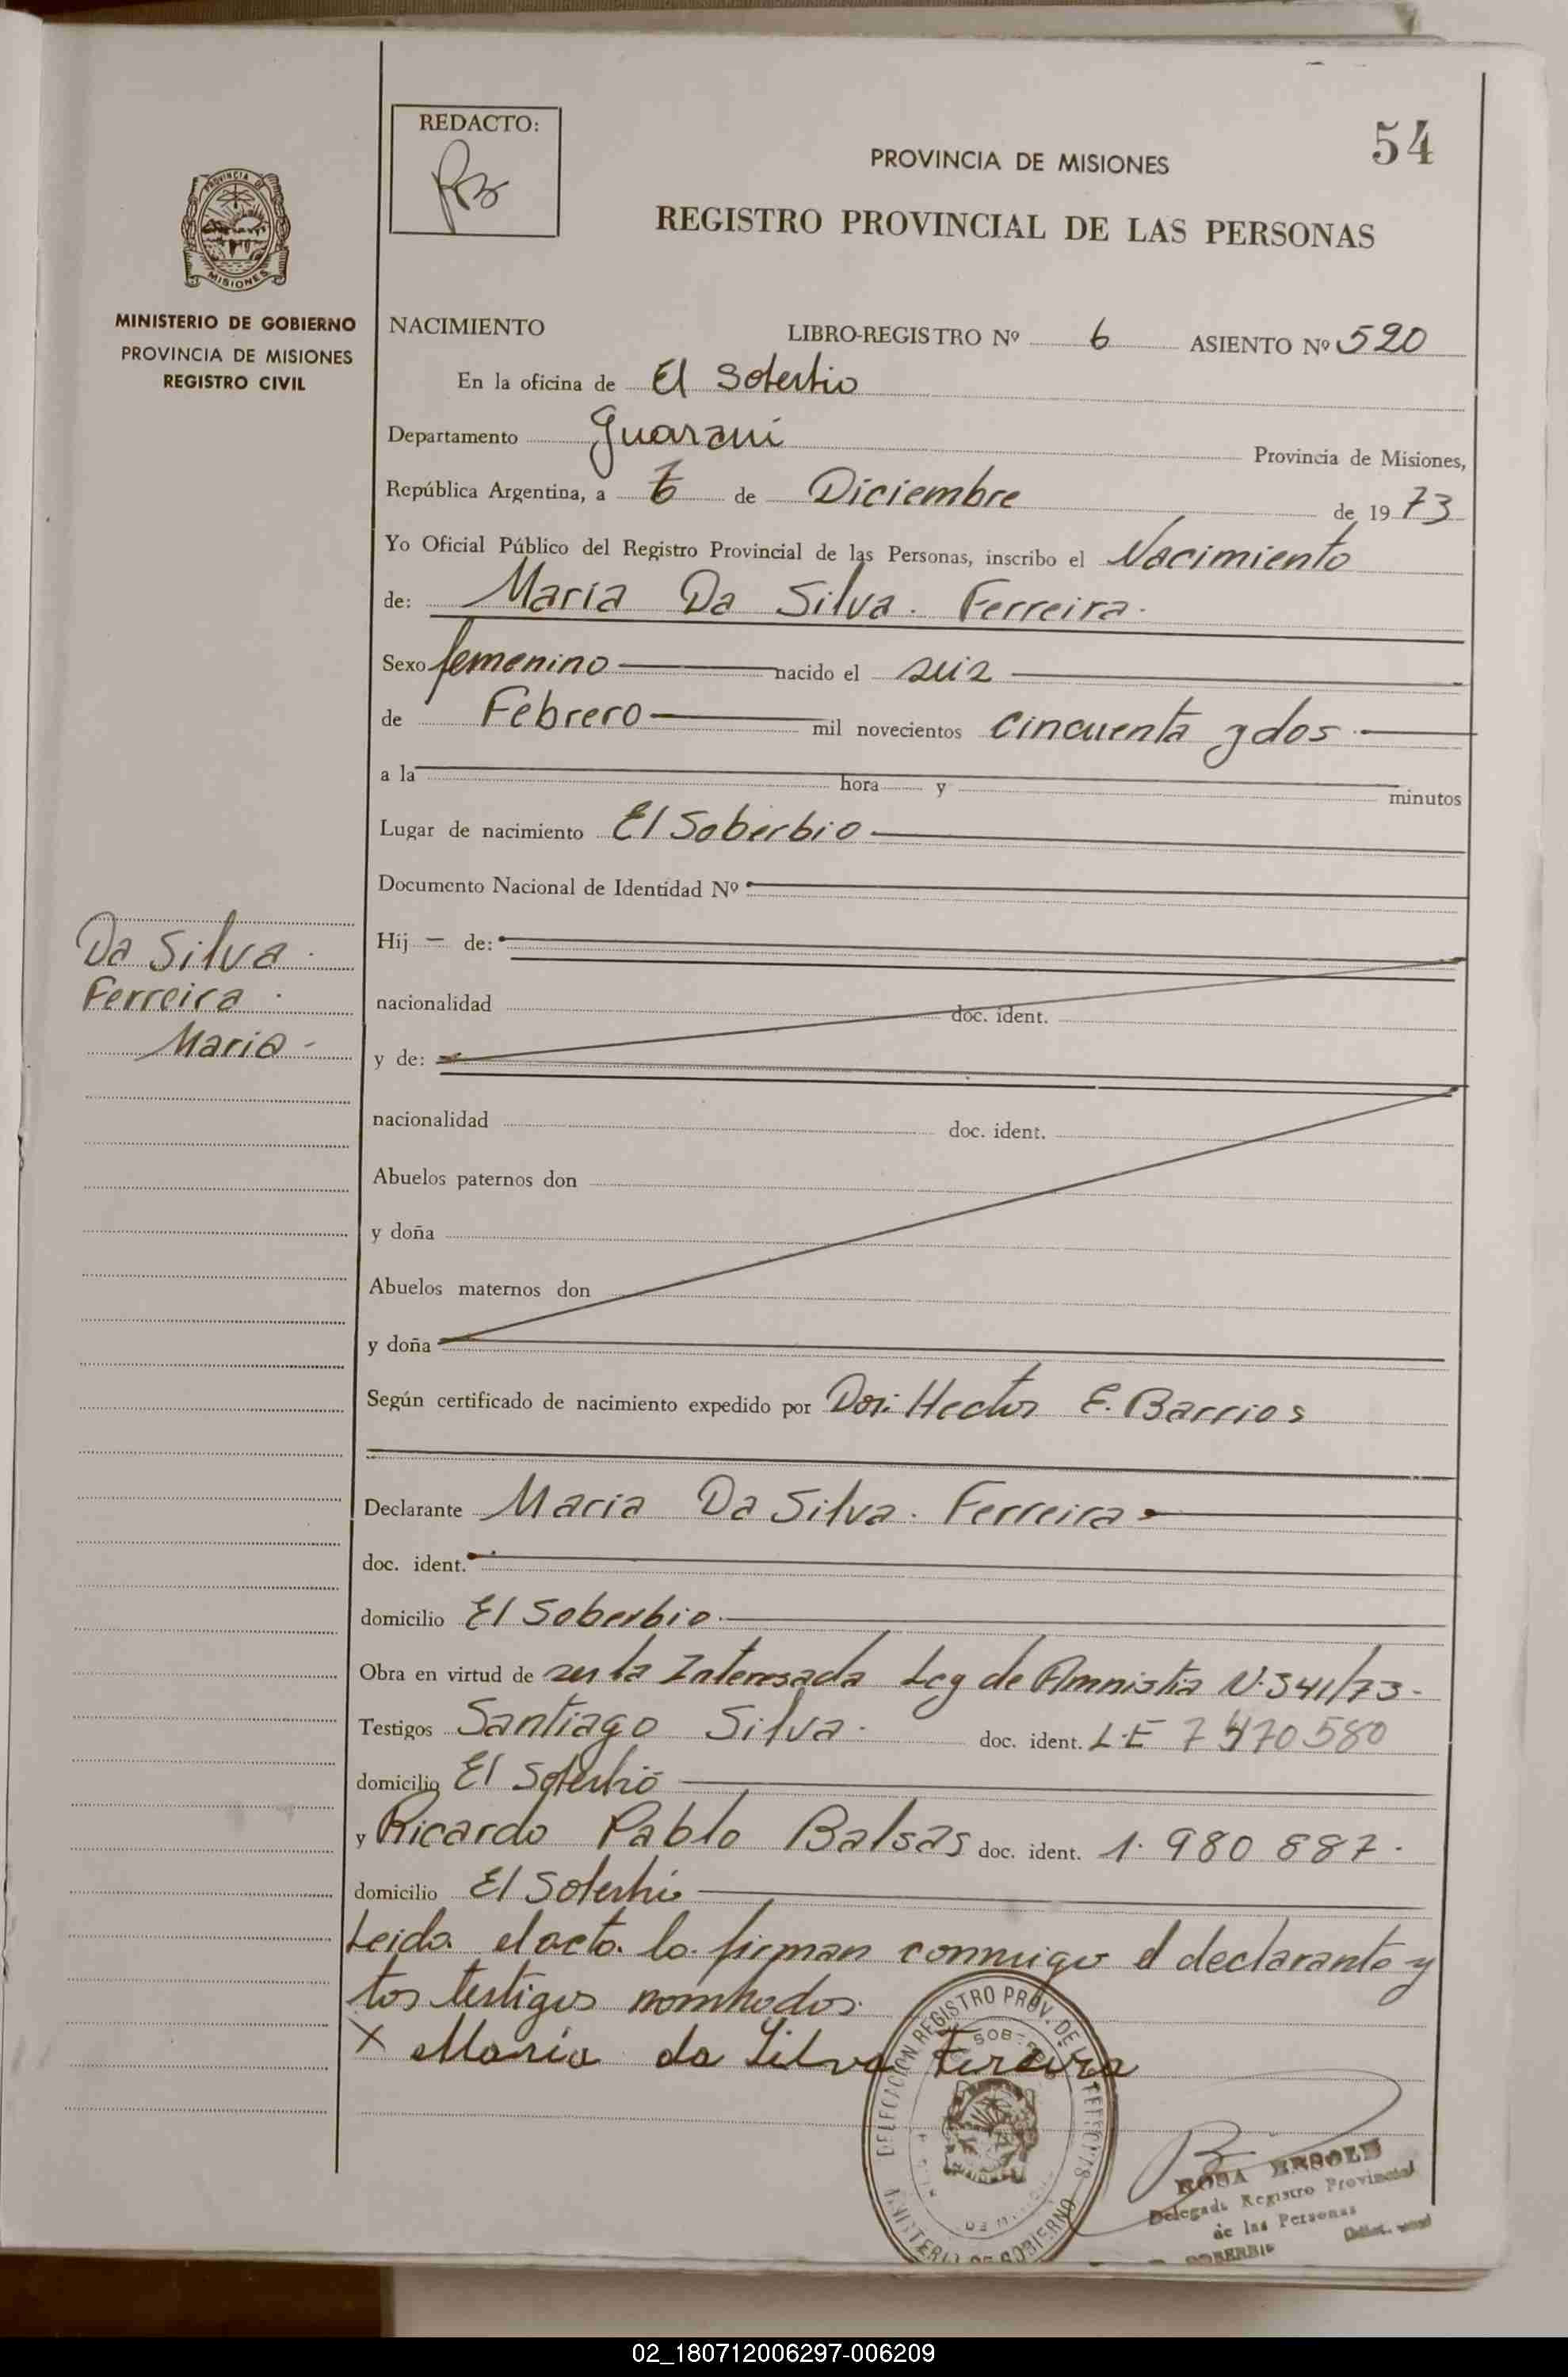 REDACTO:
54
PROVINCIA DE MISIONES
REGISTRO PROVINCIAL DE LAS PERSONAS
PROVINCIA DE
MISIONES
MINISTERIO DE GOBIERNO
PROVINCIA DE MISIONES
REGISTRO CIVIL
NACIMIENTO LIBRO-REGISTRO Nº 6 ASIENTO Nº 520
En la oficina de El Soberbio
Departamento Guaraní Provincia de Misiones,
República Argentina, a de Diciembre de 1973
Yo Oficial Público del Registro Provincial de las Personas, inscribo el Nacimiento
de: María Da Silva. Ferreira.
Sexo femenino nacido el seis
de Febrero mil novecientos cincuenta y dos
a la hora y minutos
Lugar de nacimiento El Soberbio
Documento Nacional de Identidad Nº
Da Silva.
Ferreira.
Maria -
Hij - de:
nacionalidad doc. ident.
y de:
nacionalidad doc. ident.
Abuelos paternos don
y doña
Abuelos maternos don
y doña
Según certificado de nacimiento expedido por Hector E. Barrios
Declarante Maria Da Silva. Ferreira
doc. ident.
domicilio El Soberbio
Obra en virtud de ser la Interesada Ley de Amnistia N. 341/73-
Testigos Santiago Silva. doc. ident. L.E 7470580
domicilio El Soberbio
y Ricardo Pablo Balsas doc. ident. 1.980 887.
domicilio El Soberbio
Leida el acta. la firman conmigo el declarante y
los testigos nombrados.
X Maria da Silva Fereira
DELEGACION REGISTRO PROV. DE LAS PERSONAS
MINISTERIO DE GOBIERNO
ROSA
Delegada Registro Provincial
de las Personas
SOBERBIO
02_180712006297-006209